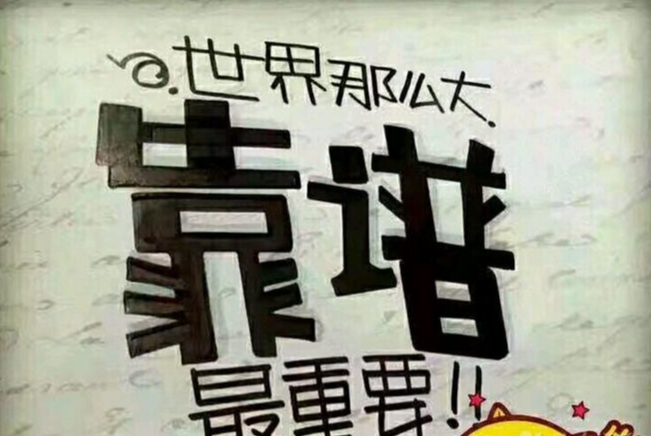 世界那么大.
靠谱
最重要!!